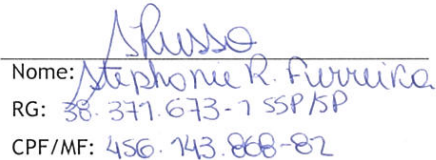 SRusso
Nome: Stephanie R. Furreira
RG: 38.371.673-1 SSP/SP
CPF/MF: 456.143.868-82